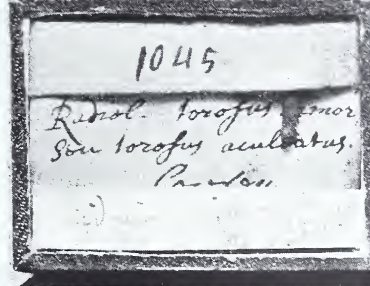 1045
Radiol. torosus minor
seu torosus aculeatus.